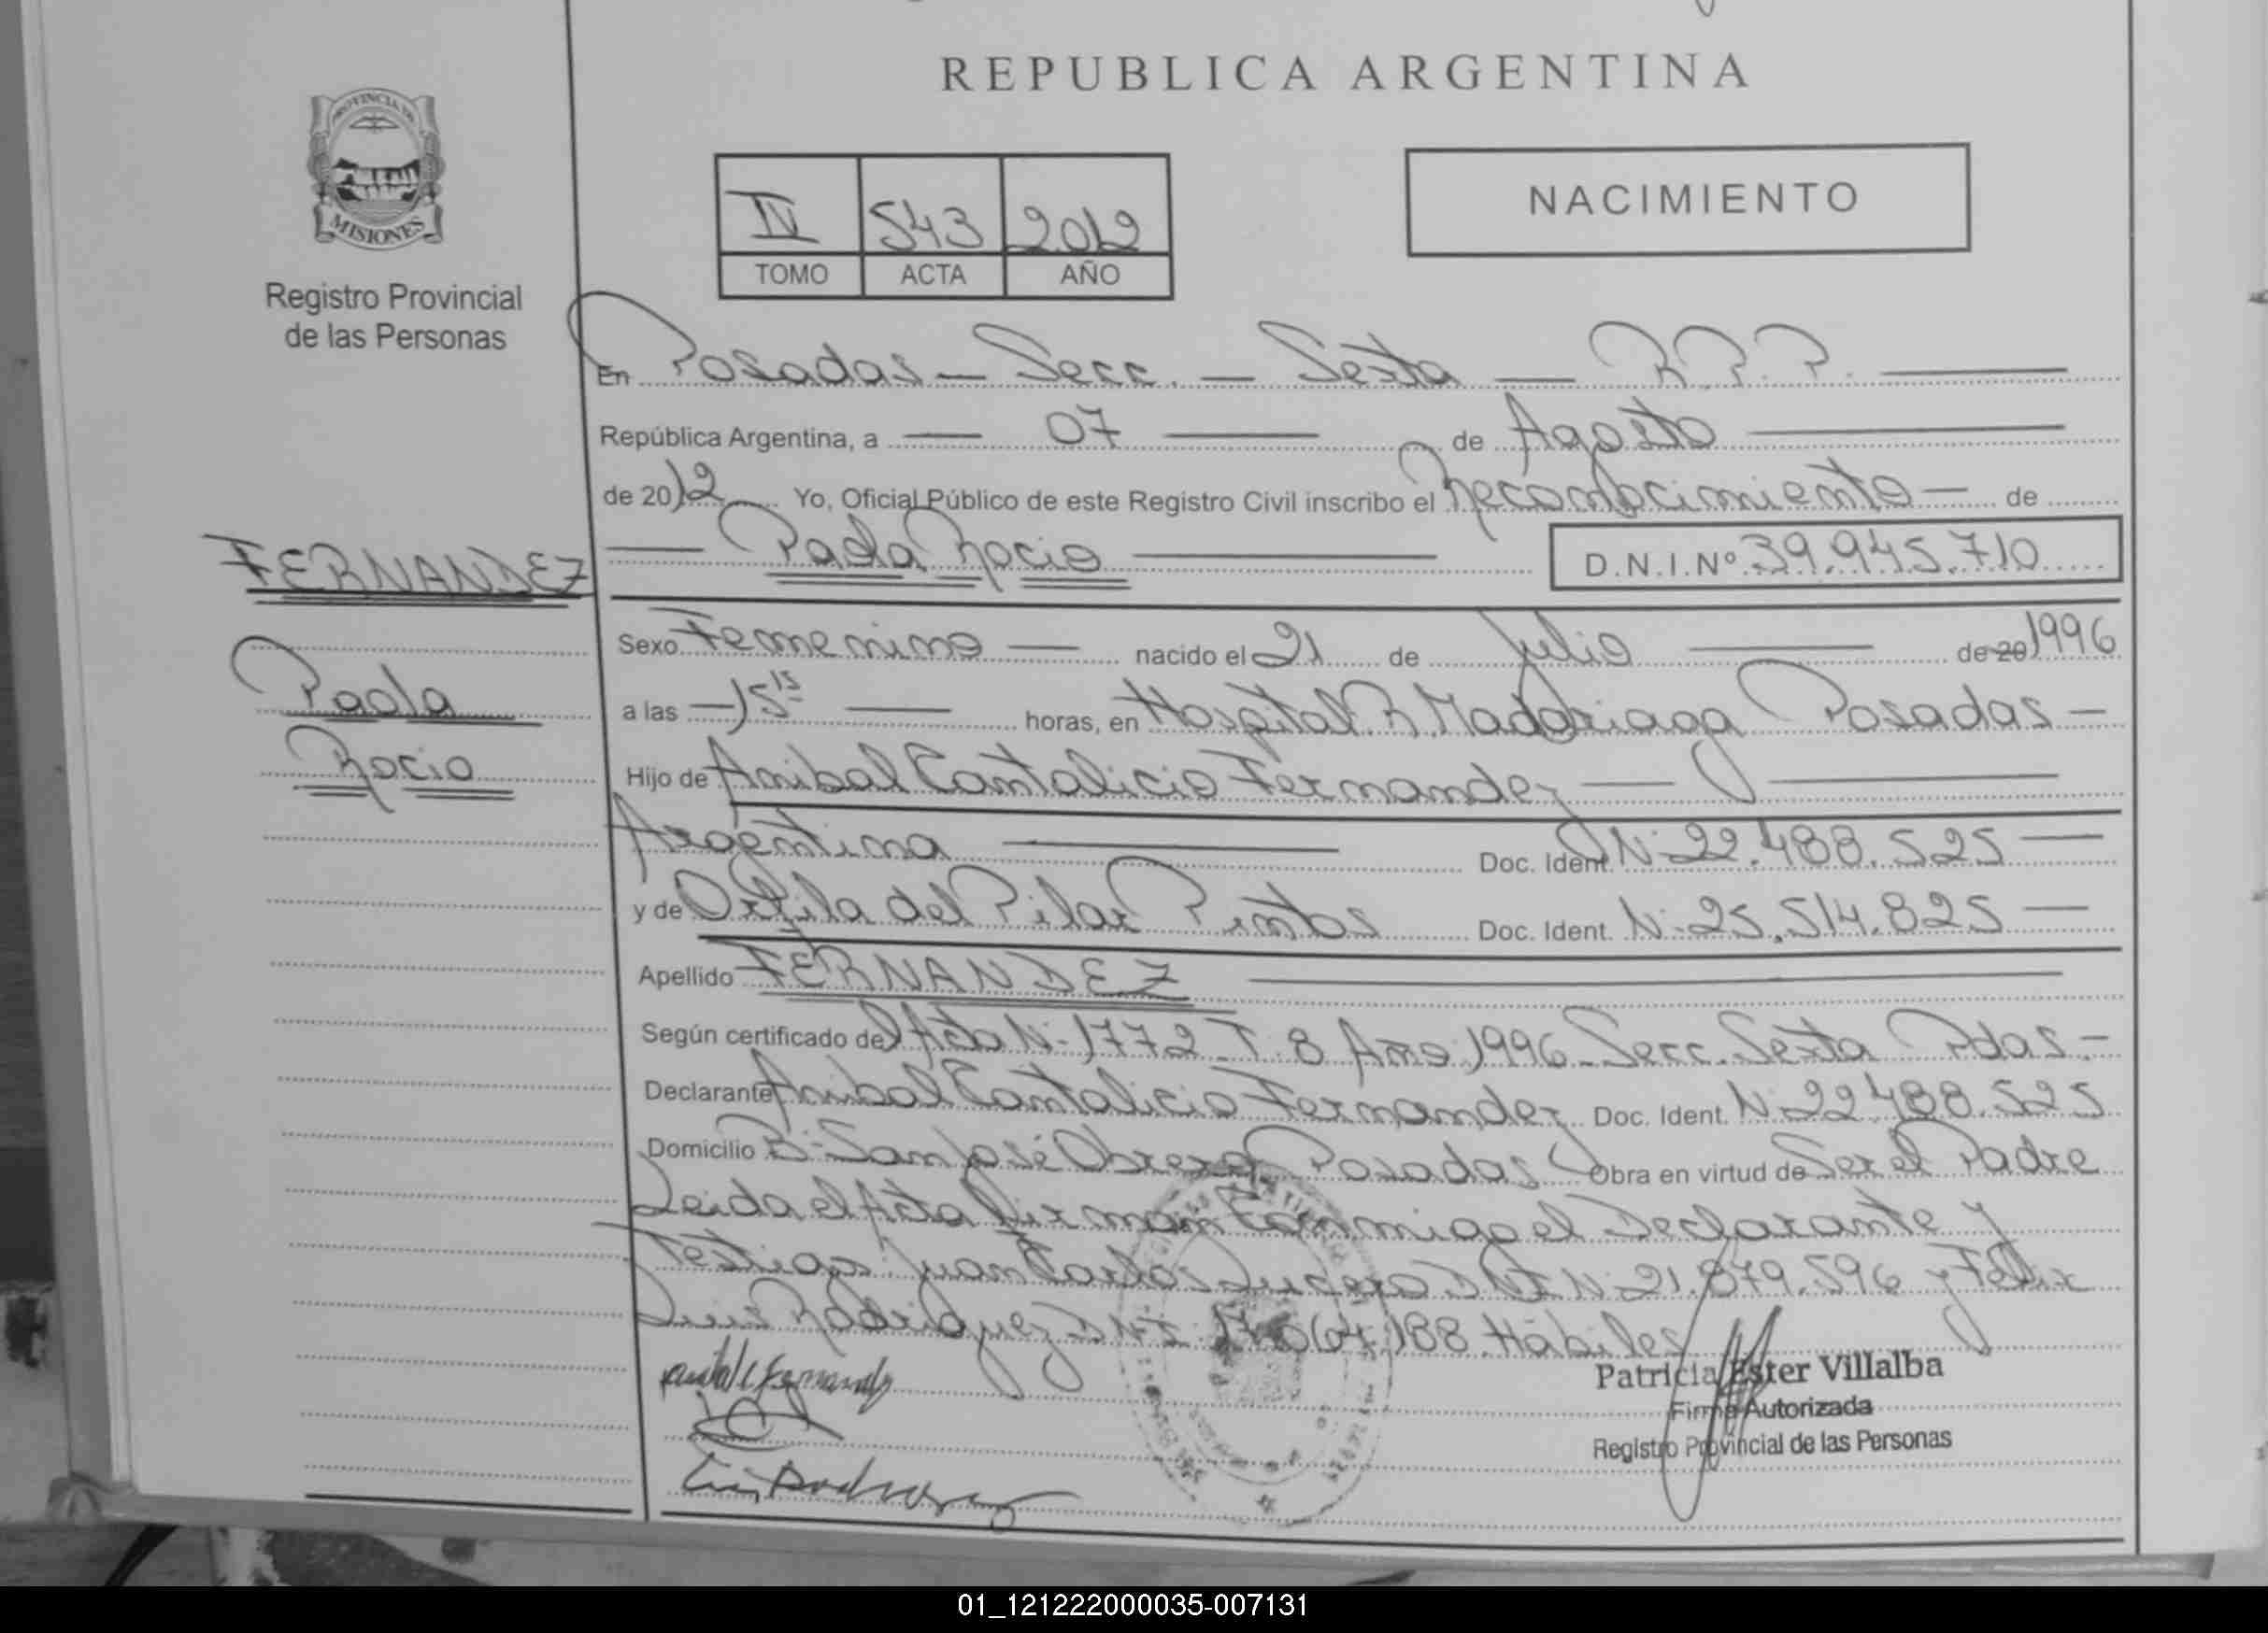 REPUBLICA ARGENTINA
PROVINCIA DE
MISIONES
Registro Provincial
de las Personas
IV 543 2012
TOMO ACTA AÑO
NACIMIENTO
En Posadas - Secc. - Sexta - R.P.P.
República Argentina, a - 07 - de Agosto
de 2012 Yo, Oficial Público de este Registro Civil inscribo el Reconocimiento - de
Paola Rocio
D.N.I.Nº 39.945.710
FERNANDEZ
Paola
Rocio
Sexo Femenino - nacido el 21 de Julio - de 20 1996
a las - 15 15 - horas, en Hospital R. Madariaga Posadas -
Hijo de Anibal Cantalicio Fernandez -
Argentina - Doc. Ident. N· 22.488.525 -
y de del Pilar Pintos Doc. Ident. N· 25.514.825 -
Apellido FERNANDEZ
Según certificado del Acta N· 1772 T. 8 Año 1996 - Secc. Sexta Pdas. -
Declarante Anibal Cantalicio Fernandez Doc. Ident. N· 22.488.525
Domicilio B· San José Obrero Posadas Obra en virtud de Ser el Padre
Leida el Acta Firman Conmigo el Declarante y
Testigos Juan Carlos Lucero DNI N· 21.879.596 y Felix
Luis Rodriguez DNI 064.188 Hábiles
Patricia Ester Villalba
Firma Autorizada
Registro Provincial de las Personas
01_121222000035-007131